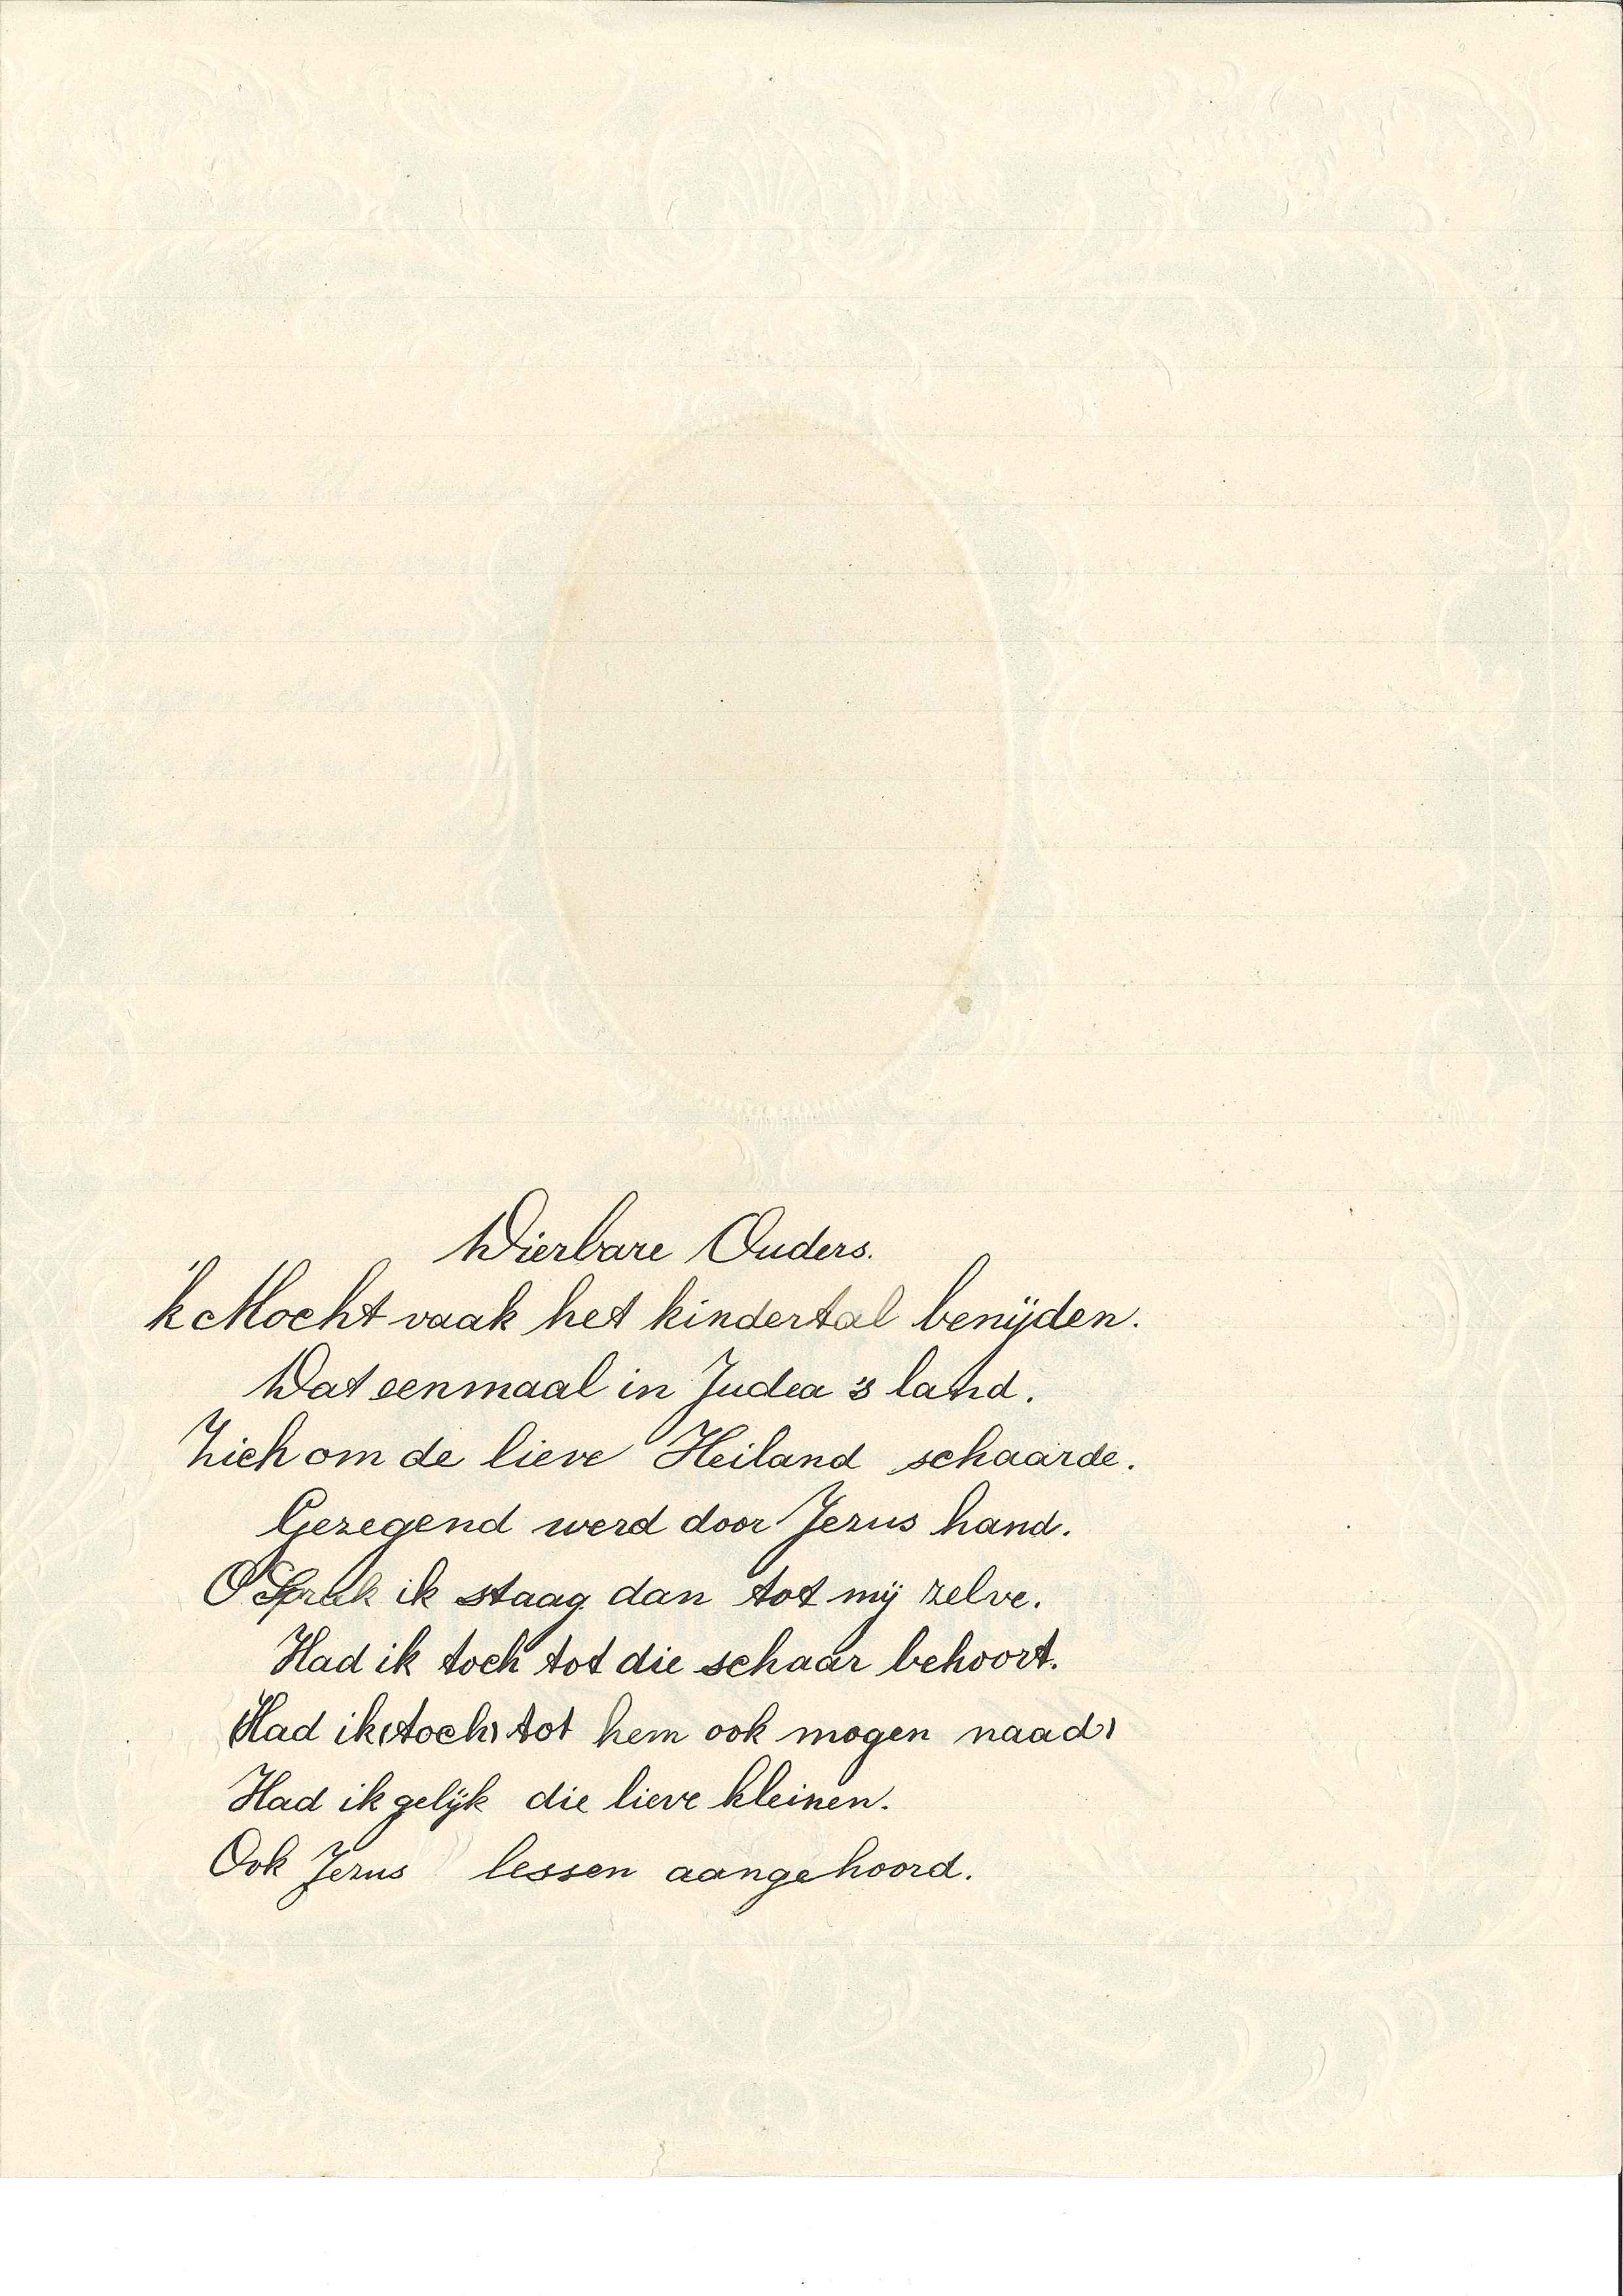 Dierbare Ouders.
'k Mocht vaak het kindertal benijden.
Dat eenmaal in Judea 's land.
Zich om de lieve Heiland schaarde.
Gezegend werd door Jezus hand.
O Sprak ik staag dan tot mij zelve.
Had ik toch tot die schaar behoort.
Had ik toch tot hem ook mogen naad
Had ik gelijk die lieve kleinen.
Ook Jezus lessen aangehoord.